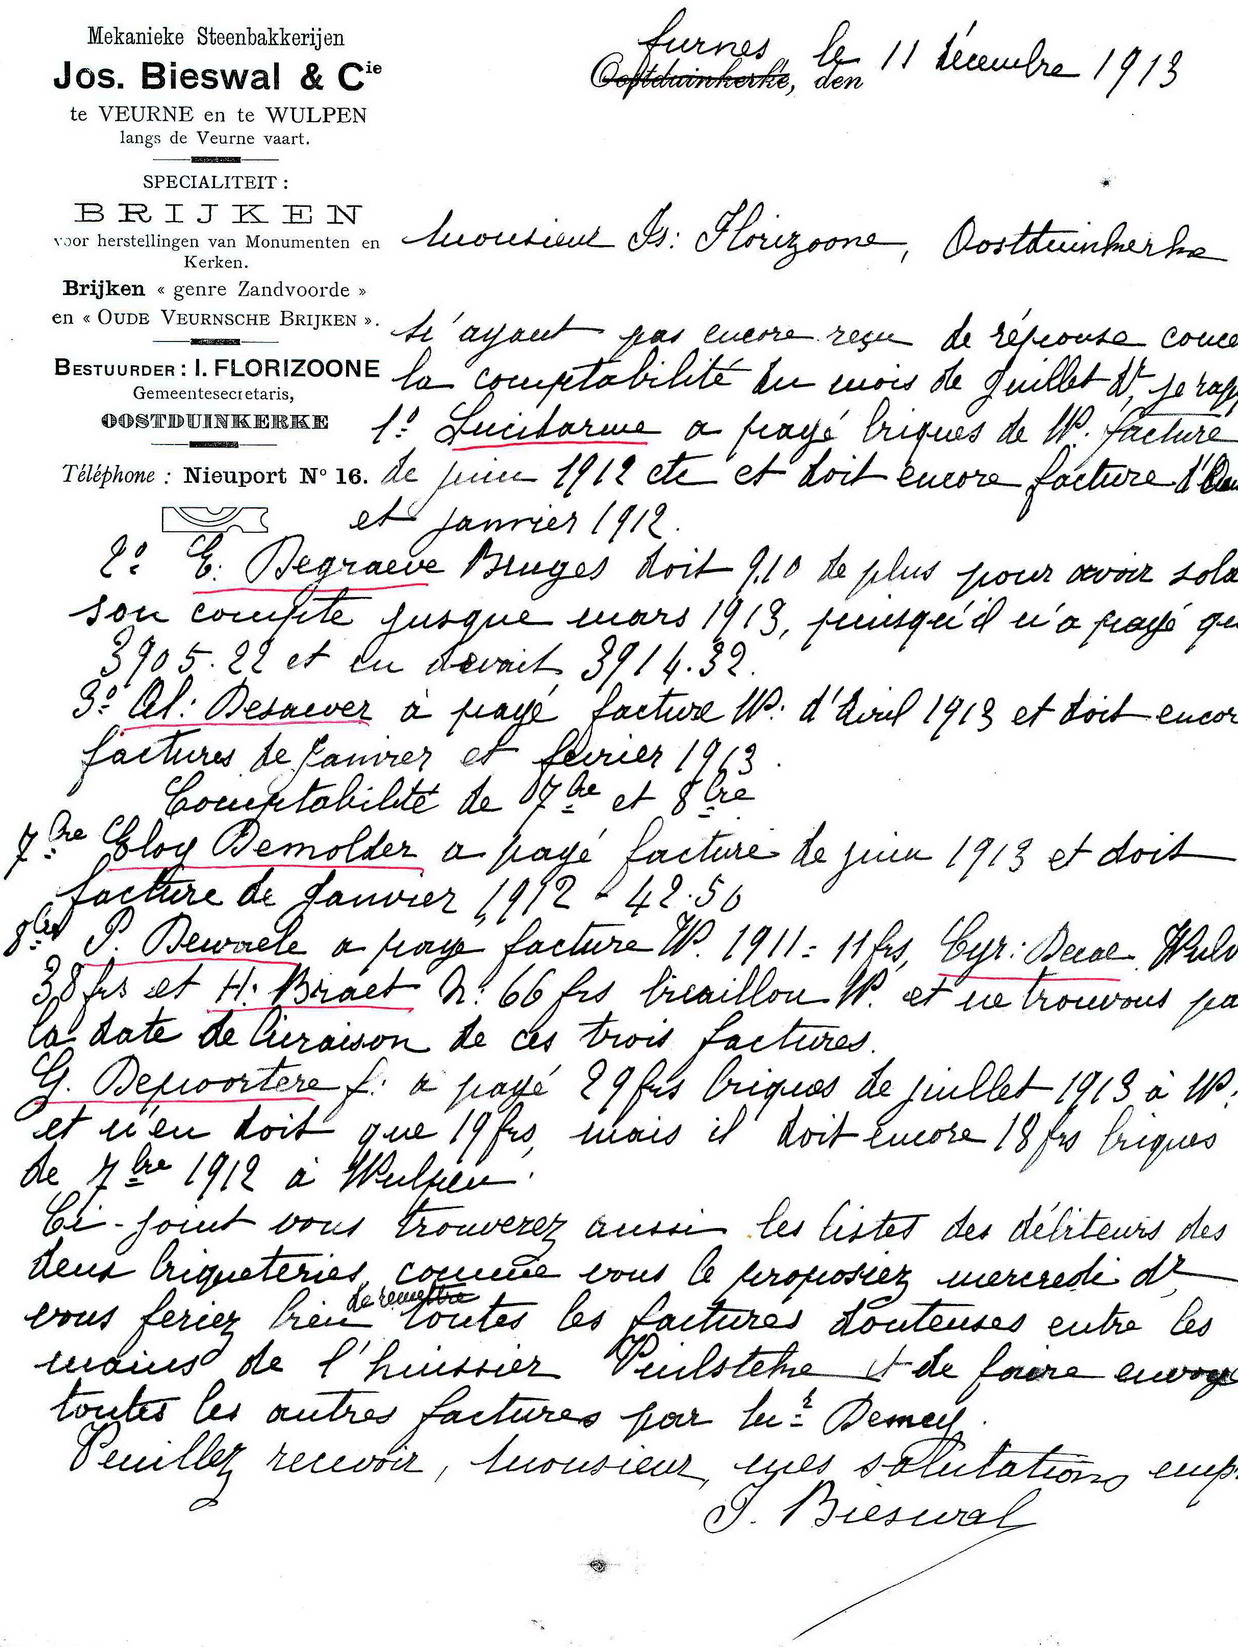 Mekanieke Steenbakkerijen
Jos. Bieswal & Cie
te VEURNE en te WULPEN
langs de Veurne vaart.
SPECIALITEIT :
BRIJKEN
voor herstellingen van Monumenten en
Kerken.
Brijken « genre Zandvoorde »
en « OUDE VEURNSCHE BRIJKEN ».
BESTUURDER : I. FLORIZOONE
Gemeentesecretaris,
OOSTDUINKERKE
Téléphone : Nieuport No 16.
furnes, le 11 décembre 1913
Oostduinkerke, den
Monsieur Is: Florizoone, Oostduinkerke
N'ayant pas encore reçu de réponse conce
la comptabilité du mois de Juillet dr, je rapp
1o Lucidarme a payé briques de W. facture
de juin 1912 etc et doit encore facture
et janvier 1912.
2o E. Degraeve Bruges doit 9,10 de plus pour avoir sold
son compte jusque mars 1913, puisqu'il n'a payé qu
3905.22 et en devait 3914.32.
3o Al: Desaever à payé facture W: d'Avril 1913 et doit encor
factures de Janvier et fevrier 1913.
Comptabilité de 7bre et 8bre
7bre Eloy Demolder a payé facture de juin 1913 et doit
facture de Janvier 1912 - 42.50
8bre P. Dewaele a payé facture W. 1911 = 11 frs, Cyr: Decae Wulv
38 frs et H: Braet N: 66 frs bricaillon W. et ne trouvons pa
la date de livraison de ces trois factures.
G. Depoortere f: a payé 29 frs briques de juillet 1913 à W:
et n'en doit que 19 frs, mais il doit encore 18 frs briques
de 7bre 1912 à Wulpen.
Ci-joint vous trouverez aussi les listes des débiteurs des
deux briqueteries, comme vous le proposiez mercredi dr
vous feriez bien de remettre toutes les factures douteuses entre les
mains de l'huissier Vuilsteke et de faire envoye
toutes les autres factures par Mr Demey.
Veuillez recevoir, Monsieur, mes salutations emp.
J. Bieswal